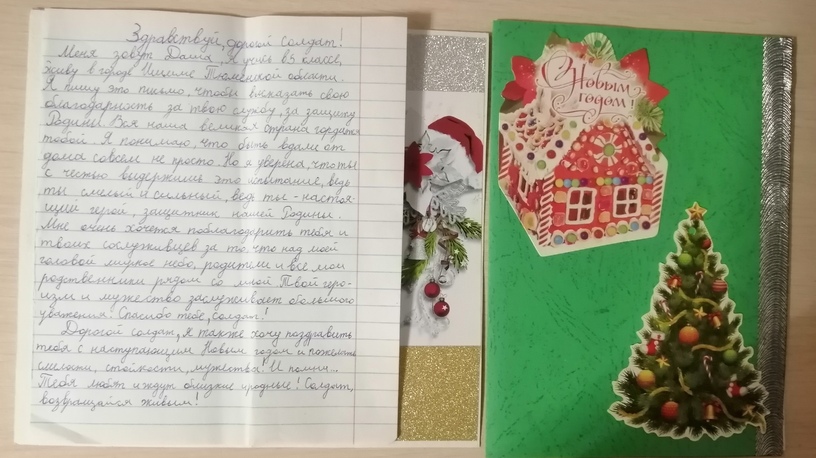 Здравствуй, дорогой солдат!
Меня зовут Даша. Я учусь в 5 классе,
живу в городе Ишиме Тюменской области.
Я пишу это письмо, чтобы высказать свою
благодарность за твою службу, за защиту
Родины. Вся наша великая страна гордится
тобой. Я понимаю, что быть вдали от
дома совсем не просто. Но я уверена, что ты
с честью выдержишь это испытание, ведь
ты смелый и сильный, ведь ты - настоя-
щий герой, защитник нашей Родины.
Мне очень хочется поблагодарить тебя и
твоих сослуживцев за то, что над моей
головой мирное небо, родители и все мои
родственники рядом со мной. Твой геро-
изм и мужество заслуживает большого
уважения. Спасибо тебе, солдат!
Дорогой солдат, я также хочу поздравить
тебя с наступающим Новым годом и пожелать
смелости, стойкости, мужества! И помни...
Тебя любят и ждут близкие и родные! Солдат,
возвращайся живым!
С Новым
годом!